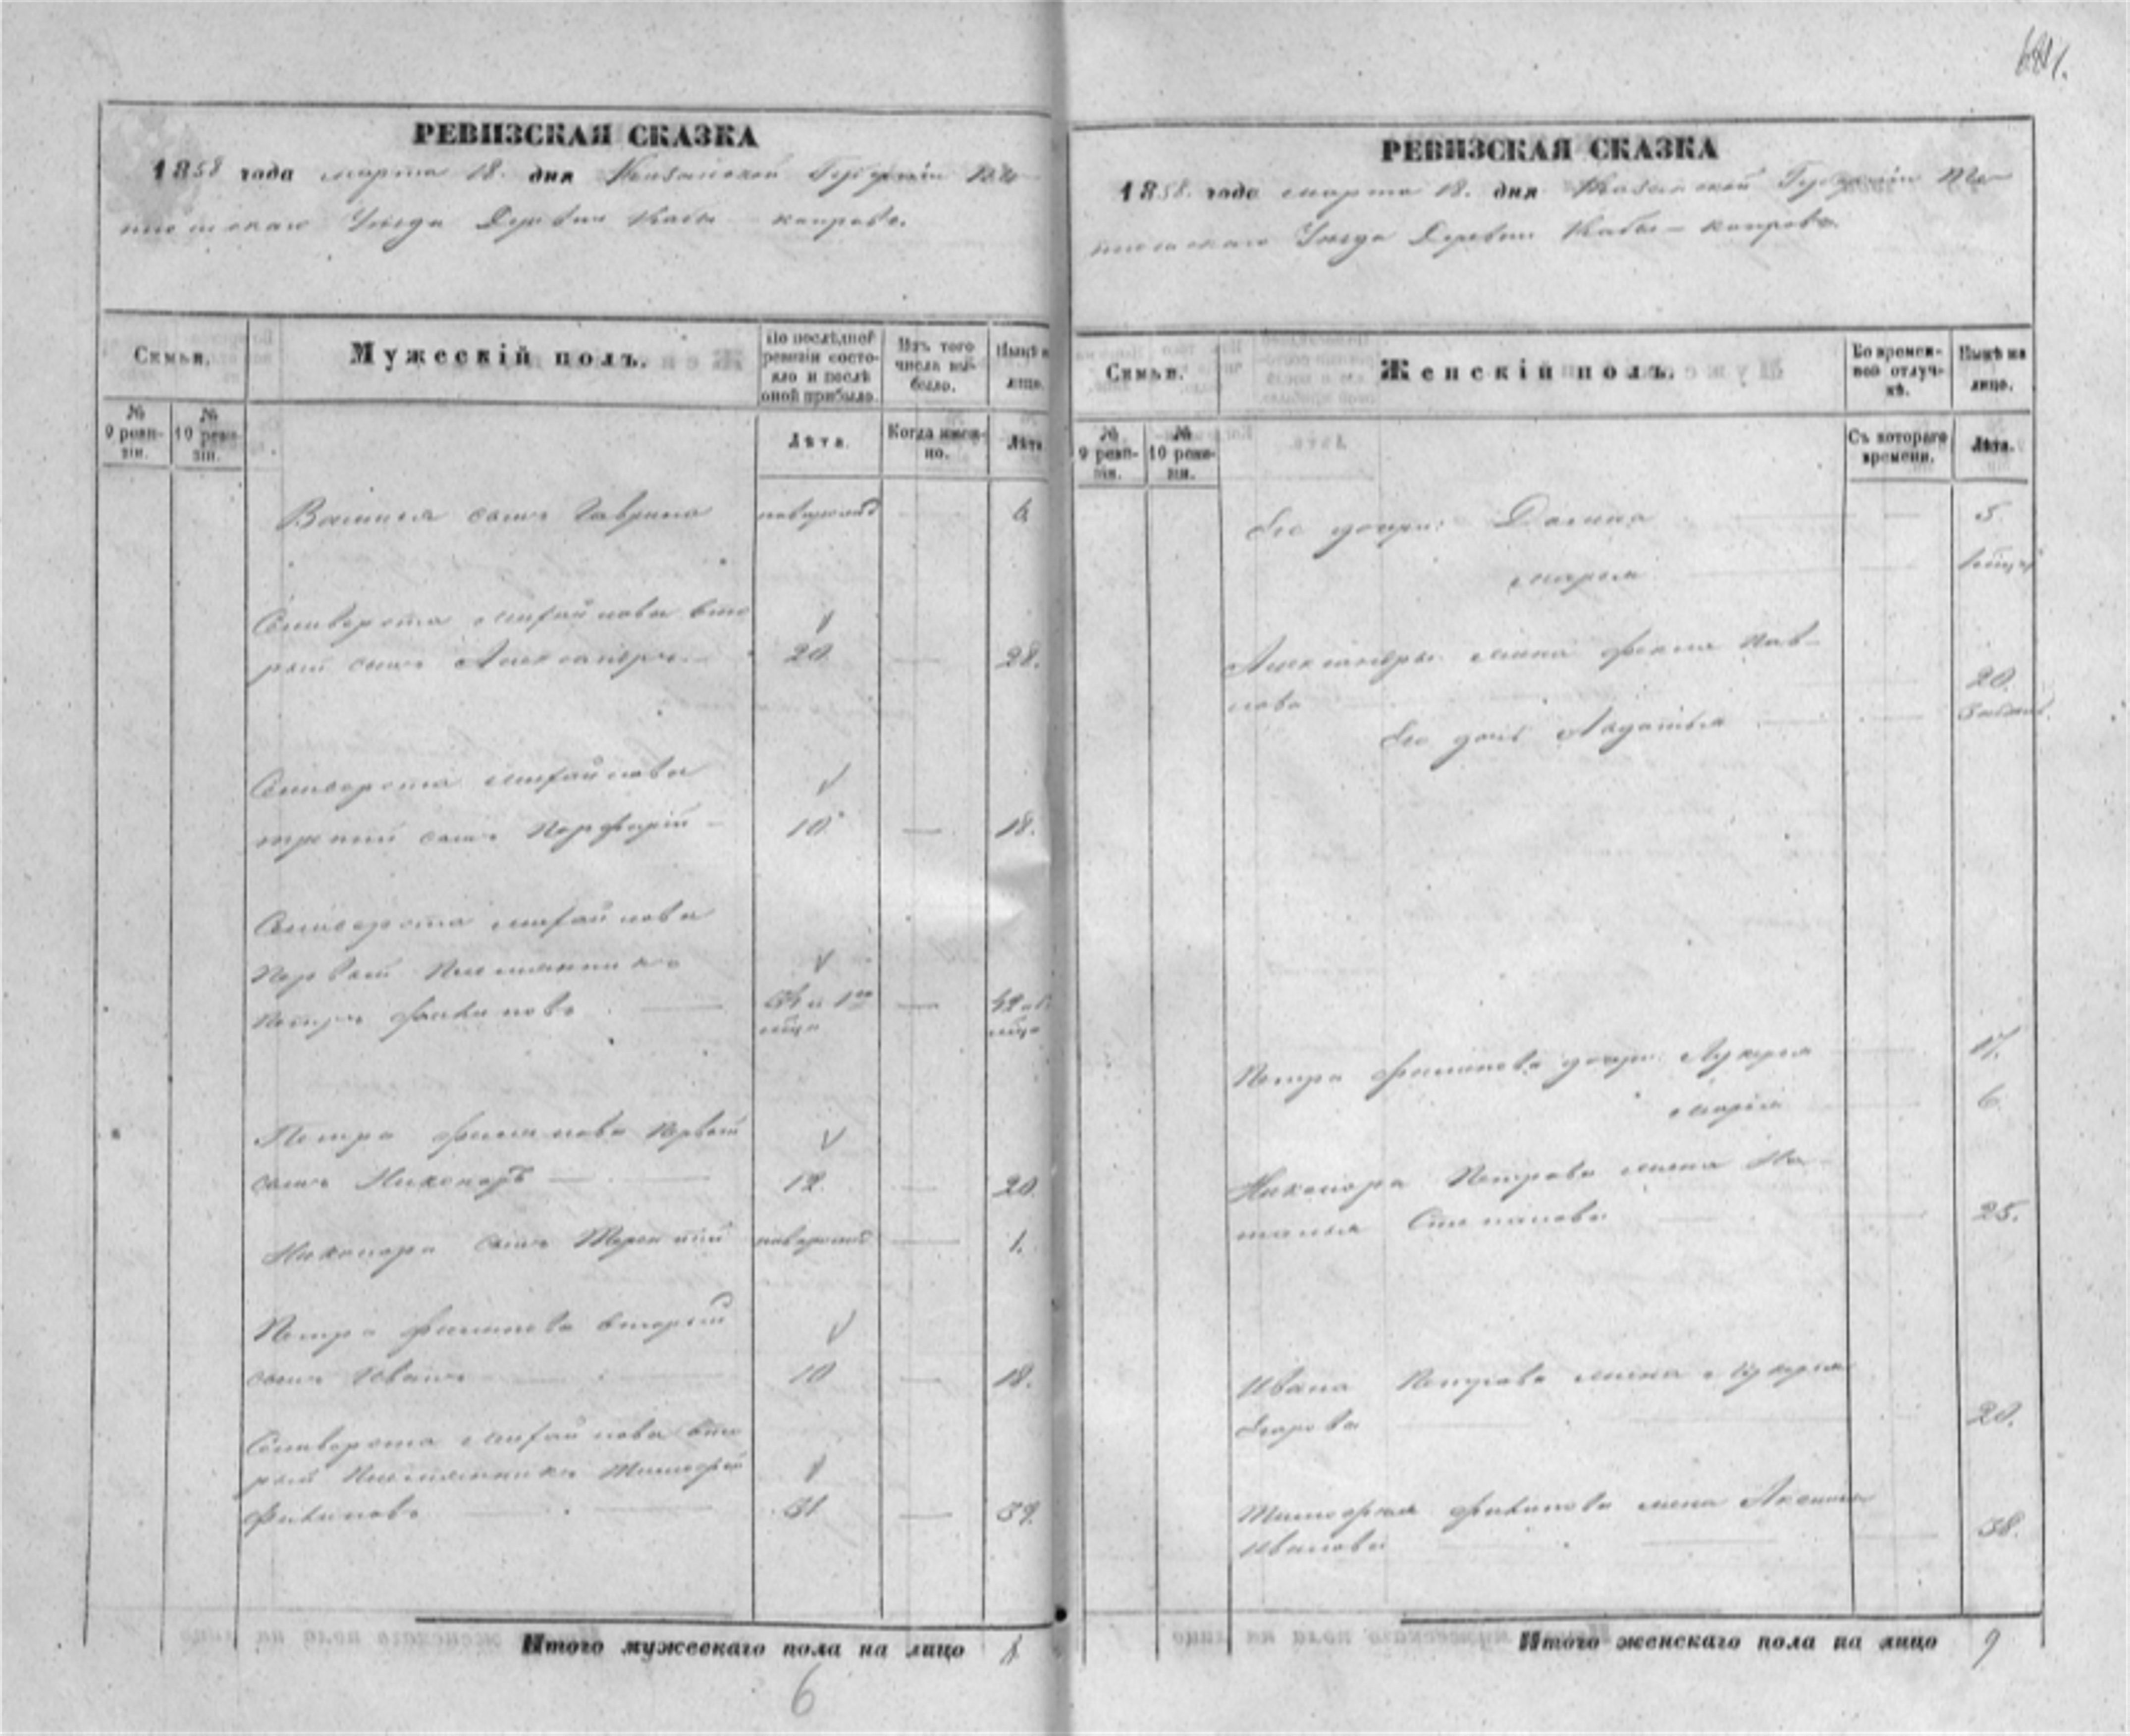 РЕВИЗСКАЯ СКАЗКА
1858 года марта 18. дня Казанской Губерніи Те-
тюшскаго Уезда Деревни Кабы - копрова.
Семьи.
Мужескій полъ.
По послѣдней ревизіи состояло и послѣ оной прибыло.
Изъ того числа выбыло.
Нынѣ на лицо.
№ 9 ревизіи.
№ 10 ревизіи.
Лѣта.
Когда именно.
Лѣта
сынъ Гаврила новорожд 6.
Селиверста Михайлова вто
рый сынъ Александръ 20 28.
Селиверста Михайлова
третий сынъ Порфирій 10 18.
Селиверста Михайлова
Первый Племянникъ
Петръ
Петра Филипова Первый
сынъ Никоноръ 12 20.
Никонора сынъ Терентий новорожд 1.
Петра Филипова вторый
сынъ Иванъ 10 18.
Селиверста Михайлова вто
рый Племянникъ Тимофей
Филиповъ 31 39.
Итого мужескаго пола на лицо 8
6
РЕВИЗСКАЯ СКАЗКА
1858. года марта 18. дня Казанской Губерніи Те-
тюшскаго Уезда Деревни Кабы - копрова.
Семьи.
Женскій полъ.
Во временной отлучкѣ.
Нынѣ на лицо.
№ 9 ревизіи.
№ 10 ревизіи.
Съ котораго времени.
Лѣта.
Его дочери: 5.
Марья
Александры жена Фекла Пав-
лова 20.
Его дочь Агафья
Петра Филипова дочери: Лукерья 17.
Марія 6
Никонора Петрова жена На-
талья Степанова 25.
Ивана Петрова жена Лукерья
Егорова 20.
Тимофея Филипова жена Аксинья
Иванова 38.
Итого женскаго пола на лицо 9